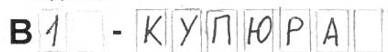 В 1 - КУПЮРА